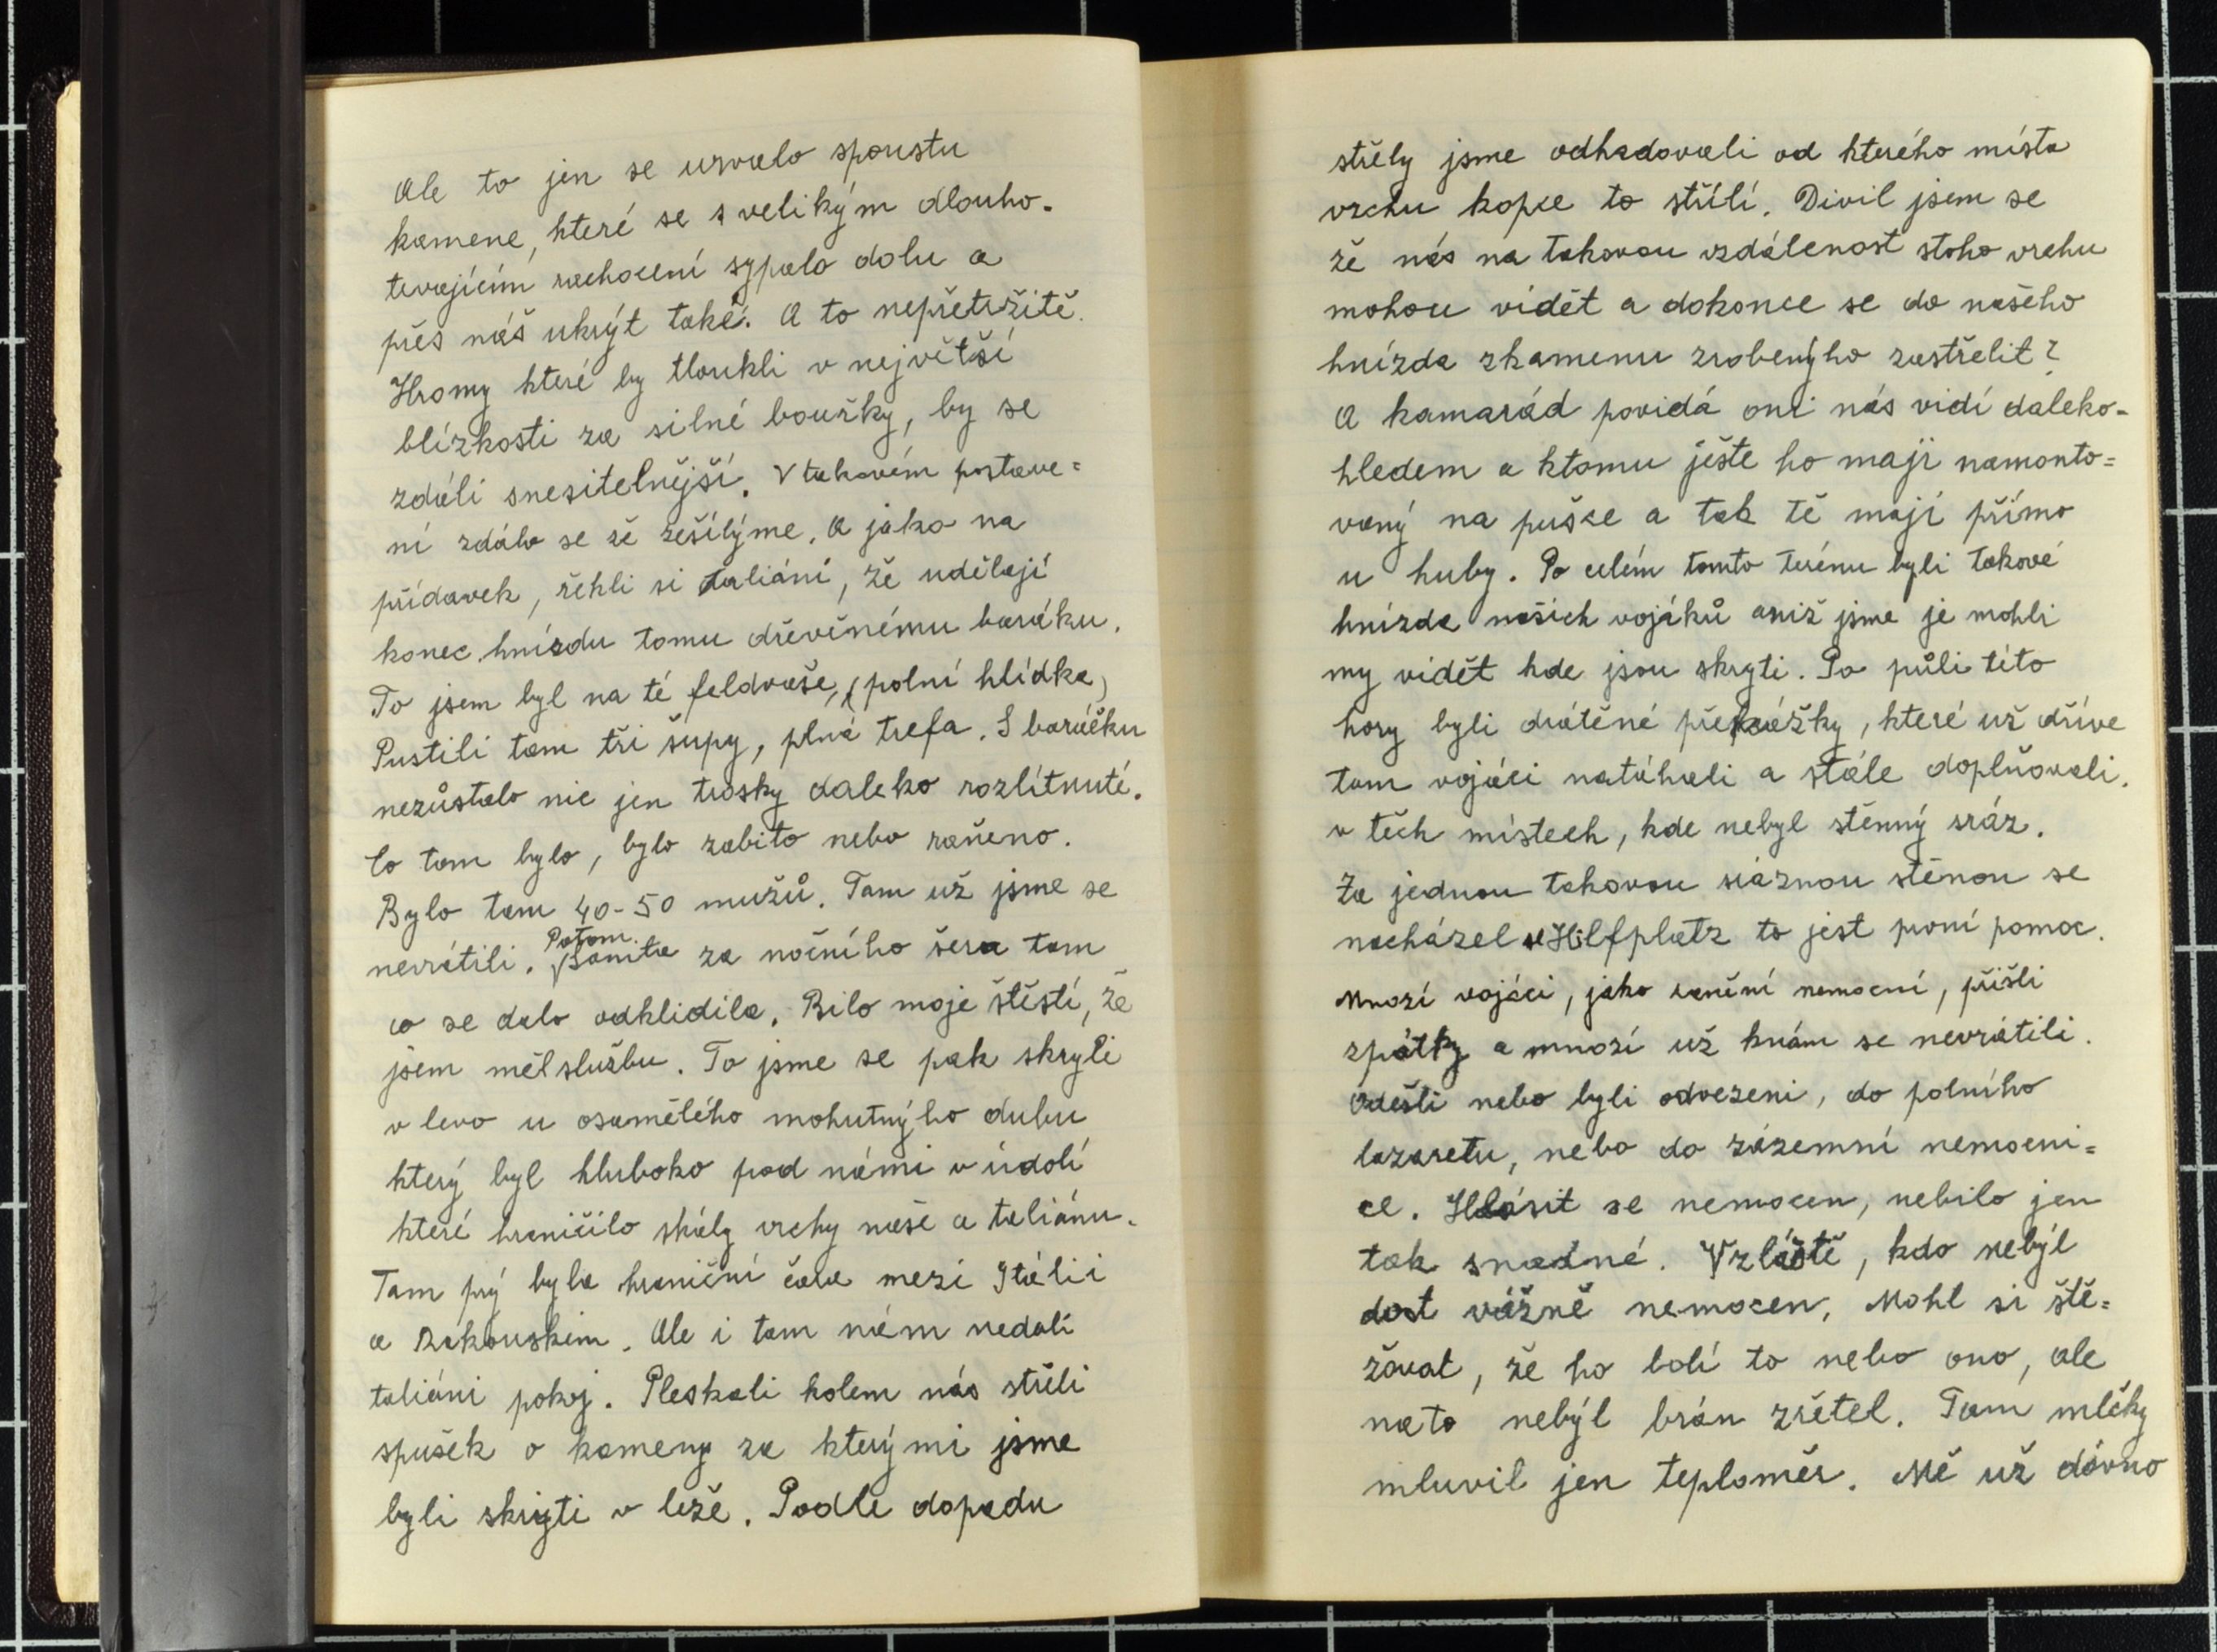 Ale to jen se urvalo spoustu
kamene, které se s velikým dlouho-
trvajícím rachocení sypalo dolu a
přes náš ukrýt také. A to nepřetržitě.
Hromy které by tloukli v největší
blízkosti za silné bouřky, by se
zdáli snesitelnější. V takovém postave=
ní zdálo se že zešílýme. A jako na
přídavek, řekli si taliáni, že udělají
konec hnízdu tomu dřevěnému baráku.
To jsem byl na té feldvaše, (polní hlídka)
Pustili tam tři šupy, plná trefa. S baráčku
nezůstalo nic jen trosky daleko rozlítnuté.
Co tam bylo, bylo zabito nebo raněno.
Bylo tam 40-50 mužů. Tam už jsme se
nevrátili. Potom Sanita za nočního šera tam
co se dalo odklidila. Bilo moje štěstí, že
jsem měl službu. To jsme se pak skryli
v levo u osamělého mohutnýho dubu
který byl hluboko pod námi v údolí
které hraničilo skály vrchy naše a taliánu.
Tam prý byla hraniční čára mezi Itálii
a Rakouskim. Ale i tam nám nedali
taliáni pokoj. Pleskali kolem nás střeli
spušek o kameny za kterými jsme
byli skrýti v leže. Podle dopadu
střely jsme odhadovali od kterého místa
vrchu kopce to střílí. Divil jsem se
že nás na takovou vzdálenost stoho vrchu
mohou vidět a dokonce se do našeho
hnízda zkamenu zrobenýho zastřelit?
A kamarád povidá oni nás vidí daleko-
hledem a ktomu ješte ho maji namonto=
vaný na pušce a tak tě mají přímo
u huby. Po celém tomto terénu byli takové
hnízda našich vojáků aniž jsme je mohli
my vidět kde jsou skryti. Po půli této
hory byli drátěné překážky, které už dříve
tam vojáci natáhali a stále doplňovali.
v těch místech, kde nebyl stěnný sráz.
Za jednou takovou sráznou stěnou se
nacházel se Hilfplatz to jest první pomoc.
Mnozí vojáci, jako ranění nemocní, přišli
zpátky a mnozí už knám se nevrátili.
Odešli nebo byli odvezeni, do polního
lazaretu, nebo do zázemní nemocni=
ce. Hlásit se nemocen, nebilo jen
tak snadné. Vzláště, kdo nebýl
dost vážně nemocen, Mohl si stě=
žovat, že ho bolí to nebo ono, ale
nato nebýl brán zřetel. Tam mlčky
mluvil jen teploměr. Mě už dávno